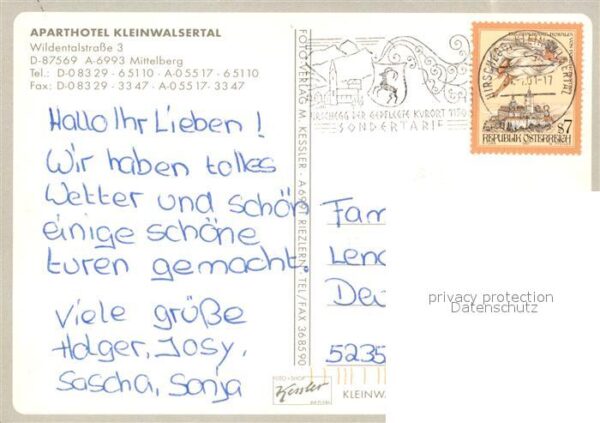 APARTHOTEL KLEINWALSERTAL
Wildentalstraße 3
D-87569 A-6993 Mittelberg
Tel.: D-0 83 29 - 6 51 10 - A-0 55 17 - 65110
Fax: D-0 83 29 - 33 47 - A-0 55 17 - 33 47
Hallo Ihr Lieben!
Wir haben tolles
Wetter und schön
einige schöne
turen gemacht.
Viele grüße
Holger, Josy,
Sascha, Sonja
FOTO VERLAG M. KESSLER - A 6991 RIEZLERN - TEL/FAX 368590
HIRSCHEGG DER GEPFLEGTE KURORT
SONDERTARIF
HIRSCHEGG, KLEINWALSERTAL
S 7
REPUBLIK ÖSTERREICH
Fam
Len
De
5235
privacy protection
Datenschutz
FOTO + SHOP
Kessler
KLEINWA